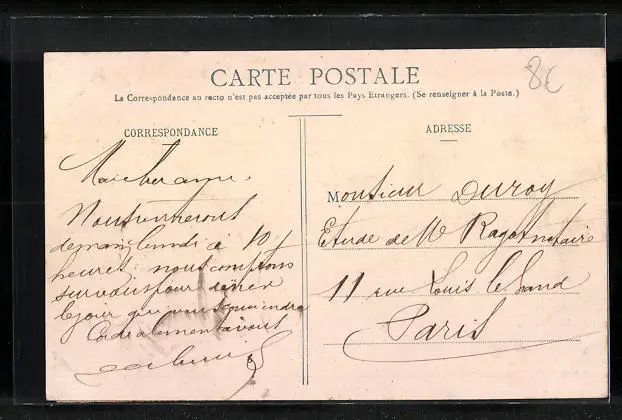 CARTE POSTALE
8€
La Correspondance au recto n'est pas acceptée par tous les Pays Etrangers. (Se renseigner à la Poste.)
CORRESPONDANCE
Mon cher ami.
Nous viendrons
demain lundi à 10
heures, nous comptons
sur vous pour dîner
le jour qui vous conviendra
Cordialement à vous
ADRESSE
Monsieur Duroy
Etude de Me Ragot notaire
11 rue Louis le Grand
Paris